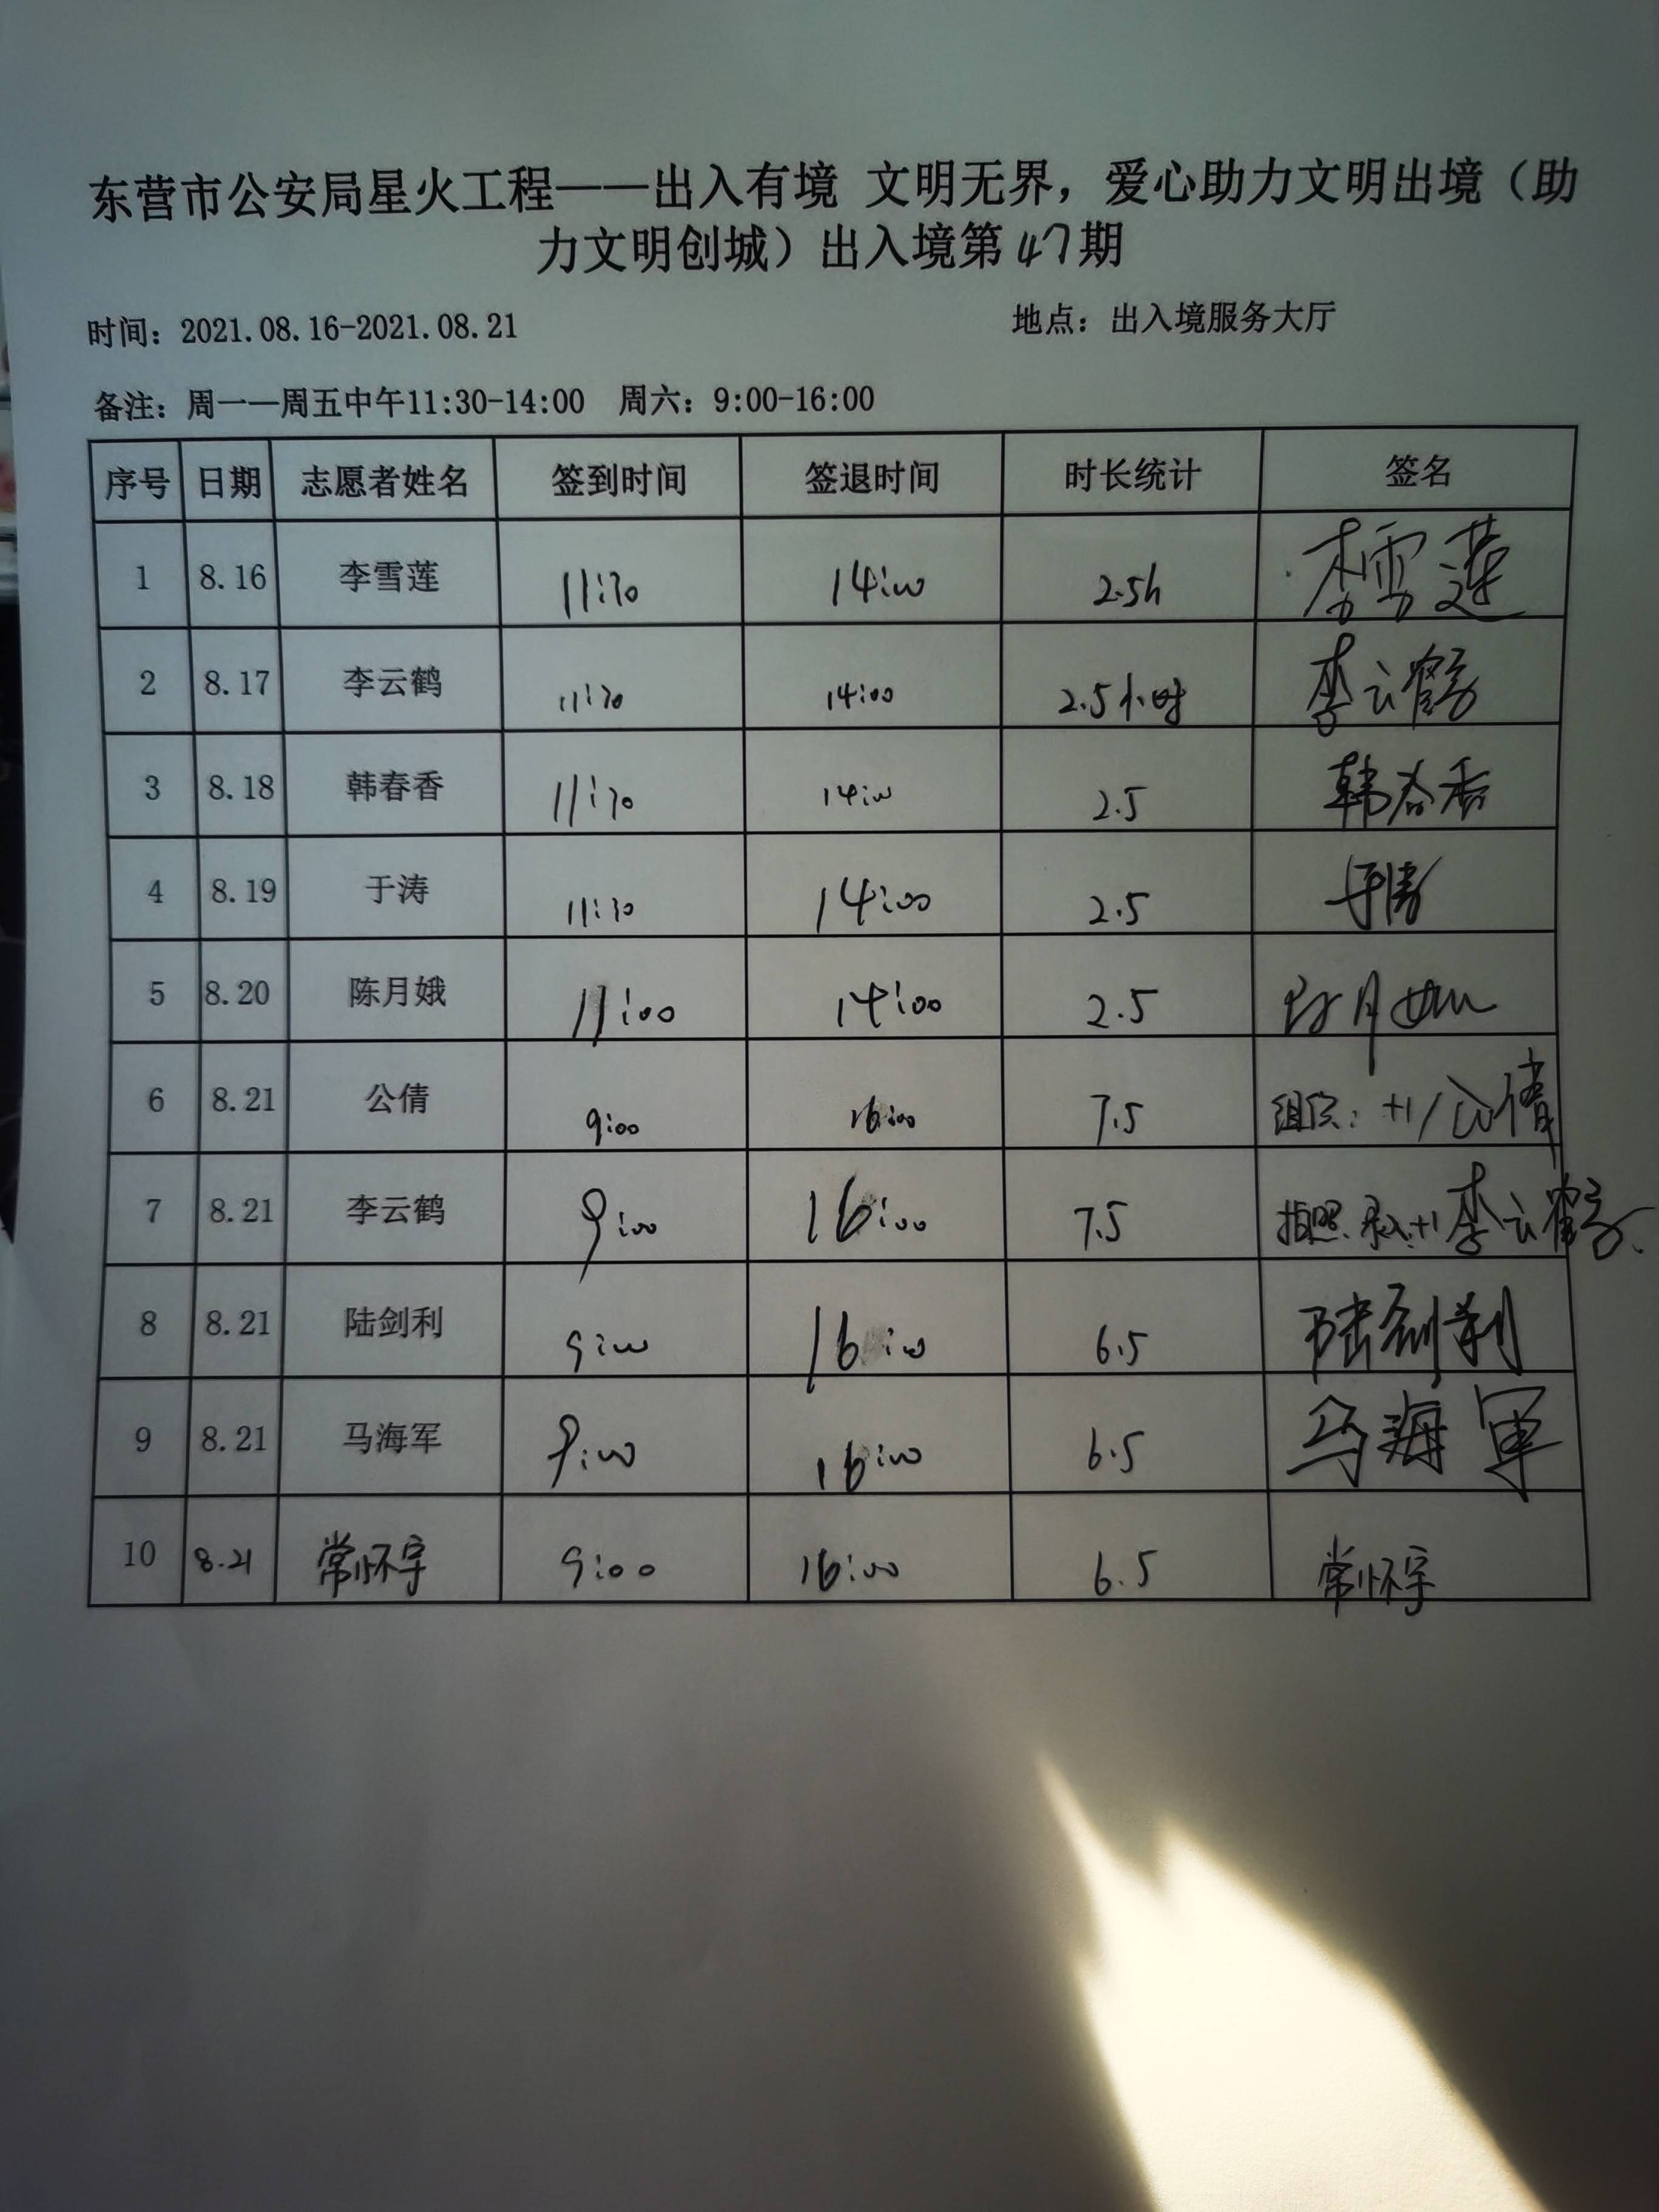 东营市公安局星火工程——出入有境 文明无界，爱心助力文明出境（助
力文明创城）出入境第47期
时间：2021.08.16-2021.08.21 地点：出入境服务大厅
备注：周一—周五中午11:30-14:00 周六：9:00-16:00
序号 日期 志愿者姓名 签到时间 签退时间 时长统计 签名
1 8.16 李雪莲 11:30 14:00 2.5h 李雪莲
2 8.17 李云鹤 11:30 14:00 2.5小时 李云鹤
3 8.18 韩春香 11:30 14:00 2.5 韩春香
4 8.19 于涛 11:30 14:00 2.5 于涛
5 8.20 陈月娥 11:00 14:00 2.5 陈月娥
6 8.21 公倩 9:00 16:00 7.5 组织：+1/公倩
7 8.21 李云鹤 9:00 16:00 7.5 拍照、录入+1 李云鹤
8 8.21 陆剑利 9:00 16:00 6.5 陆剑利
9 8.21 马海军 9:00 16:00 6.5 马海军
10 8.21 常怀宇 9:00 16:00 6.5 常怀宇